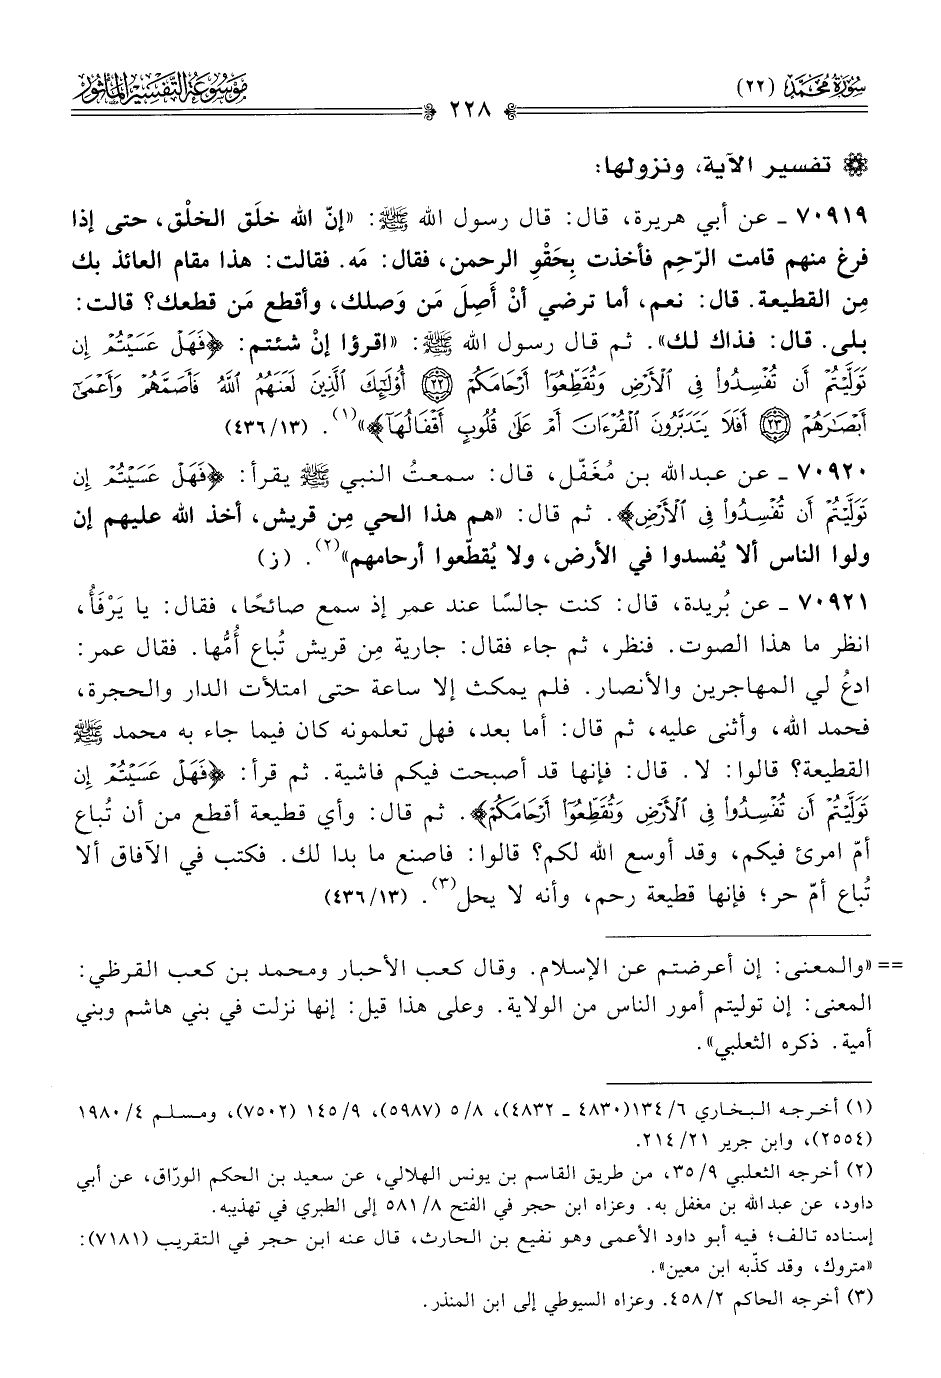 سُورَةُ مُحَمَّد (٢٢)
٢٢٨
مَوْسُوعَةُ التَّفْسِيرِ المَأْثُورِ
تفسير الآية، ونزولها:
٧٠٩١٩ ـ عن أبي هريرة، قال: قال رسول الله ﷺ: «إنّ الله خلَق الخلْق، حتى إذا
فرغ منهم قامت الرّحِم فأخذت بِحَقْوِ الرحمن، فقال: مَه. فقالت: هذا مقام العائذ بك
مِن القطيعة. قال: نعم، أما ترضي أنْ أَصِلَ مَن وَصلك، وأقطع مَن قطعك؟ قالت:
بلى. قال: فذاك لك». ثم قال رسول الله ﷺ: «اقرؤا إنْ شئتم: ﴿فَهَلْ عَسَيْتُمْ إِن
تَوَلَّيْتُمْ أَن تُفْسِدُوا۟ فِى ٱلْأَرْضِ وَتُقَطِّعُوٓا۟ أَرْحَامَكُمْ ۝٢٢ أُو۟لَٰٓئِكَ ٱلَّذِينَ لَعَنَهُمُ ٱللَّهُ فَأَصَمَّهُمْ وَأَعْمَىٰٓ
أَبْصَٰرَهُمْ ۝٢٣ أَفَلَا يَتَدَبَّرُونَ ٱلْقُرْءَانَ أَمْ عَلَىٰ قُلُوبٍ أَقْفَالُهَآ﴾»(١). (٤٣٦/١٣)
٧٠٩٢٠ ـ عن عبدالله بن مُغَفّل، قال: سمعتُ النبي ﷺ يقرأ: ﴿فَهَلْ عَسَيْتُمْ إِن
تَوَلَّيْتُمْ أَن تُفْسِدُوا۟ فِى ٱلْأَرْضِ﴾. ثم قال: «هم هذا الحي مِن قريش، أخذ الله عليهم إن
ولوا الناس ألا يُفسدوا في الأرض، ولا يُقطّعوا أرحامهم»(٢). (ز)
٧٠٩٢١ ـ عن بُريدة، قال: كنت جالسًا عند عمر إذ سمع صائحًا، فقال: يا يَرْفَأُ،
انظر ما هذا الصوت. فنظر، ثم جاء فقال: جارية مِن قريش تُباع أُمُّها. فقال عمر:
ادعُ لي المهاجرين والأنصار. فلم يمكث إلا ساعة حتى امتلأت الدار والحجرة،
فحمد الله، وأثنى عليه، ثم قال: أما بعد، فهل تعلمونه كان فيما جاء به محمد ﷺ
القطيعة؟ قالوا: لا. قال: فإنها قد أصبحت فيكم فاشية. ثم قرأ: ﴿فَهَلْ عَسَيْتُمْ إِن
تَوَلَّيْتُمْ أَن تُفْسِدُوا۟ فِى ٱلْأَرْضِ وَتُقَطِّعُوٓا۟ أَرْحَامَكُمْ﴾. ثم قال: وأي قطيعة أقطع من أن تُباع
أمّ امرئ فيكم، وقد أوسع الله لكم؟ قالوا: فاصنع ما بدا لك. فكتب في الآفاق ألا
تُباع أمّ حر؛ فإنها قطيعة رحم، وأنه لا يحل(٣). (٤٣٦/١٣)
== «والمعنى: إن أعرضتم عن الإسلام. وقال كعب الأحبار ومحمد بن كعب القرظي:
المعنى: إن توليتم أمور الناس من الولاية. وعلى هذا قيل: إنها نزلت في بني هاشم وبني
أمية. ذكره الثعلبي».
(١) أخرجه البخاري ٦/ ١٣٤(٤٨٣٠ ـ ٤٨٣٢)، ٨/ ٥ (٥٩٨٧)، ٩/ ١٤٥ (٧٥٠٢)، ومسلم ٤/ ١٩٨٠
(٢٥٥٤)، وابن جرير ٢١/ ٢١٤.
(٢) أخرجه الثعلبي ٩/ ٣٥، من طريق القاسم بن يونس الهلالي، عن سعيد بن الحكم الورّاق، عن أبي
داود، عن عبدالله بن مغفل به. وعزاه ابن حجر في الفتح ٨/ ٥٨١ إلى الطبري في تهذيبه.
إسناده تالف؛ فيه أبو داود الأعمى وهو نفيع بن الحارث، قال عنه ابن حجر في التقريب (٧١٨١):
«متروك، وقد كذّبه ابن معين».
(٣) أخرجه الحاكم ٢/ ٤٥٨. وعزاه السيوطي إلى ابن المنذر.